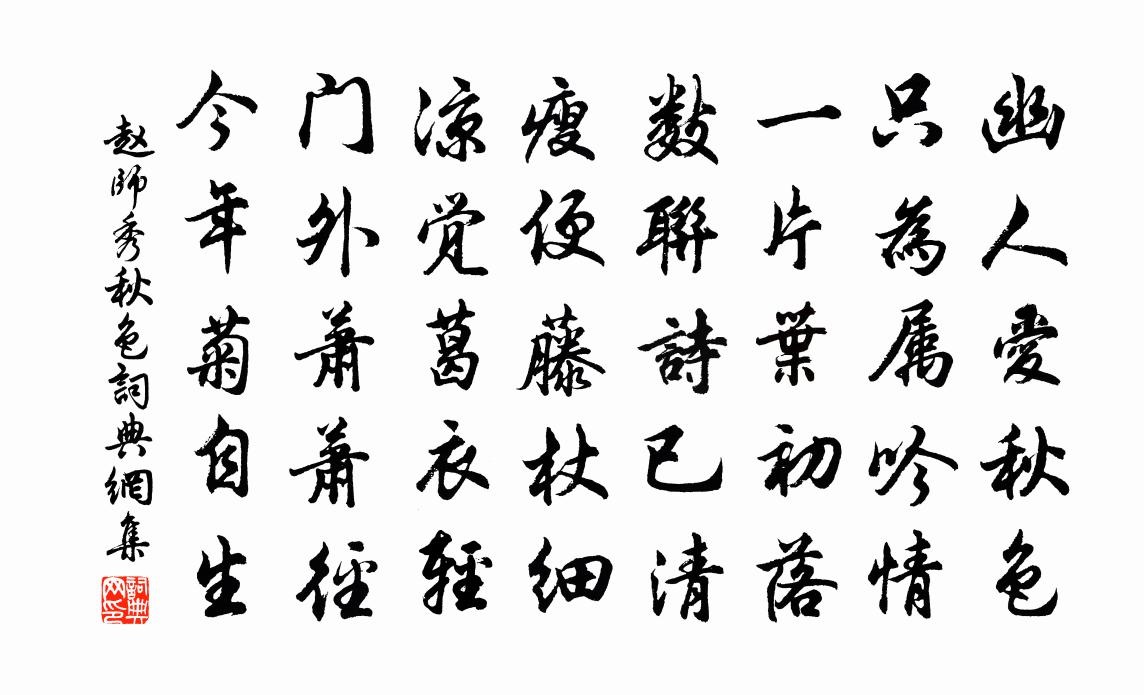 幽人愛秋色
只為属吟情
一片葉初落
数聯詩已清
瘦便藤杖细
涼覺葛衣輕
门外萧萧徑
今年菊自生
赵師秀秋色詞典網集
詞典网印